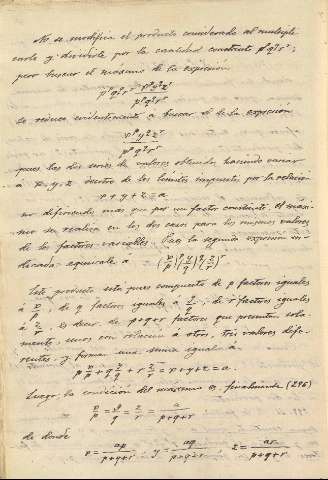 No se modifica el producto considerado al multiplicarle y dividirle por la cantidad constante p^p q^q r^r;
pero buscar el máximo de la expresión
p^p q^q r^r (x^p y^q z^r)/(p^p q^q r^r)
se reduce evidentemente á buscar el de la expresión
(x^p y^q z^r)/(p^p q^q r^r)
pues las dos series de valores obtenidos haciendo variar
á x, y, z dentro de los límites impuestos por la relación
x + y + z = a
no difiriendo mas que por un factor constante el máxi-
mo se realiza en los dos casos para los mismos valores
de los factores variables. la segunda expresión in-
dicada, equivale á (x/p)^p (y/q)^q (z/r)^r
Este producto está pues compuesto de p factores iguales
á x/p, de q factores iguales á y/q, de r factores iguales
á z/r, es decir de p+q+r factores que presentan sola-
mente, unos con relación á otros, tres valores dife-
rentes y forman una suma igual á
p x/p + q y/q + r z/r = x + y + z = a.
Luego la condición del máximo es, finalmente (296)
x/p = y/q = z/r = a/(p+q+r)
de donde
x = ap/(p+q+r) y = aq/(p+q+r) z = ar/(p+q+r)